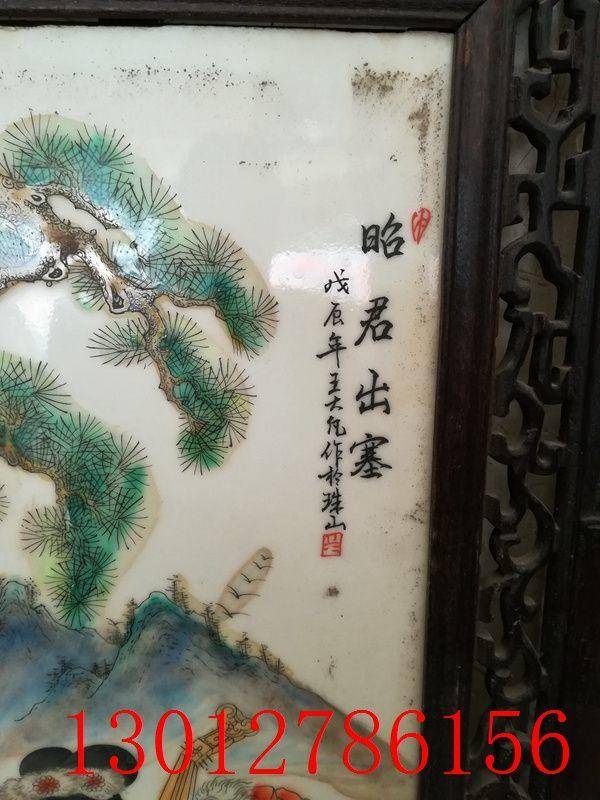 昭君出塞
戊辰年王大凡作於珠山
13012786156